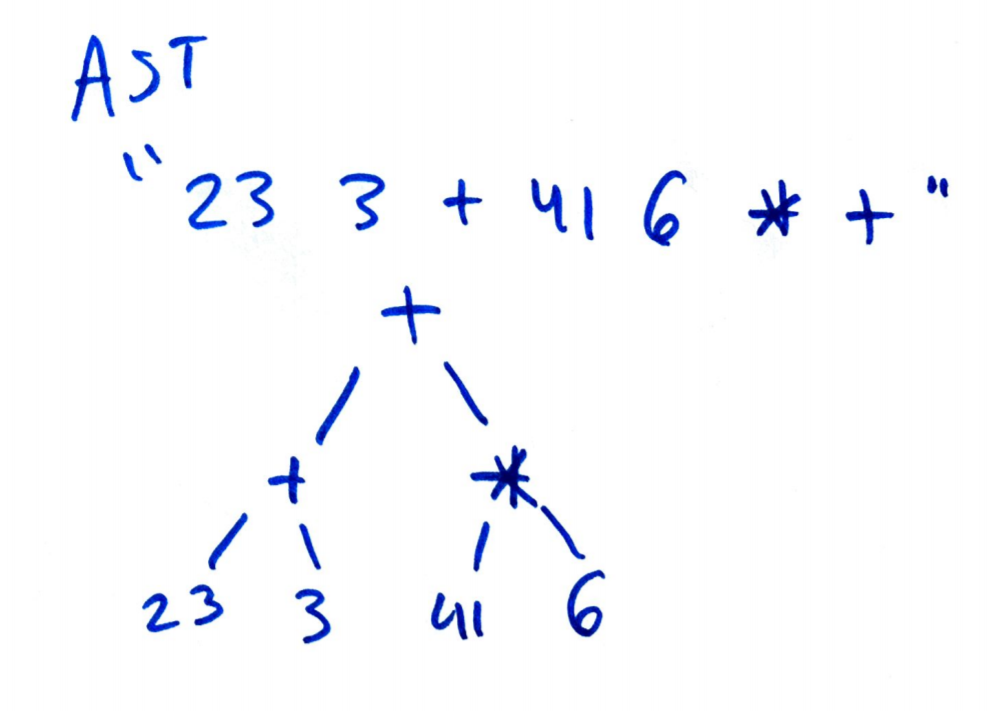 AST
"23 3 + 41 6 * +"
+
+ *
23 3 41 6